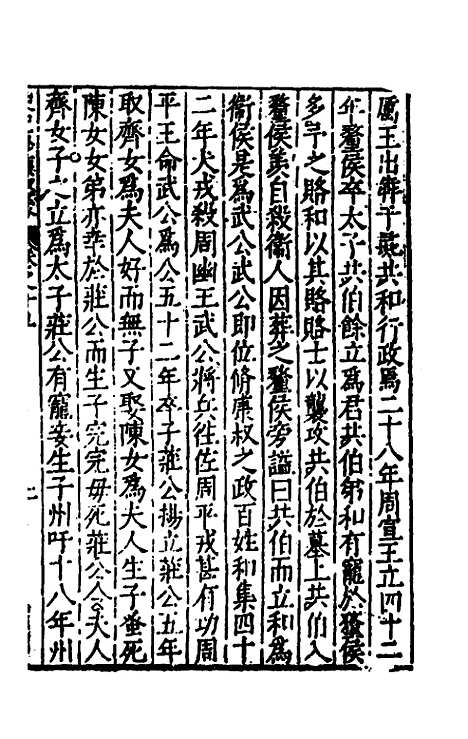 厲王出犇于彘共和行政焉二十八年周宣王立四十二
年釐侯卒太子共伯餘立爲君共伯弟和有寵於釐侯
多予之賂和以其賂賂士以襲攻共伯於墓上共伯入
釐侯羨自殺衞人因葬之釐侯旁謚曰共伯而立和爲
衞侯是爲武公武公即位脩康叔之政百姓和集四十
二年犬戎殺周幽王武公將兵往佐周平戎甚有功周
平王命武公爲公五十二年卒子莊公揚立莊公五年
取齊女爲夫人好而無子又娶陳女爲夫人生子蚤死
陳女女弟亦幸於莊公而生子完完母死莊公令夫人
齊女子之立爲太子莊公有寵妾生子州吁十八年州